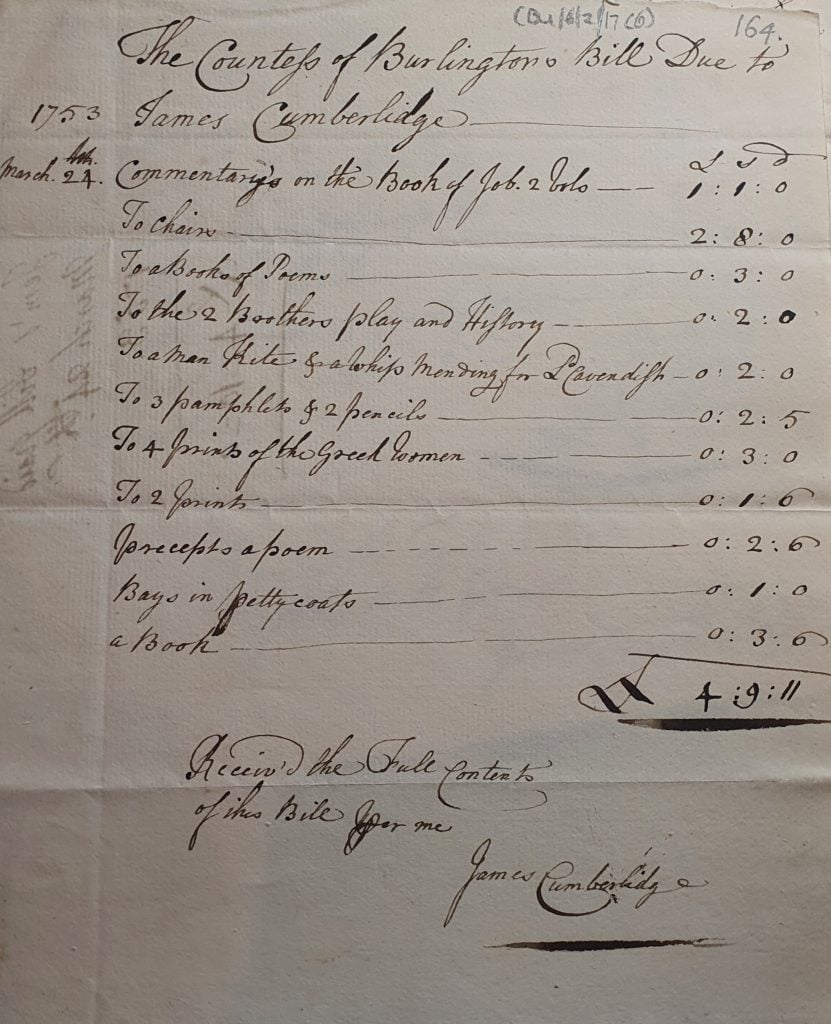 (Bu/6/2/17(6)
164.
The Countess of Burlingtons Bill Due to
1753 James Cumberlidge
£ s d
March. 24. Commentarys on the Book of Job. 2 Vols 1 : 1 : 0
To Chairs 2 : 8 : 0
To a Books of Poems 0 : 3 : 0
To the 2 Brothers play and History 0 : 2 : 0
To a Man Kite & a Whip Mending for Ld Cavendish 0 : 2 : 0
To 3 pamphlets & 2 pencils 0 : 2 : 5
To 4 prints of the Greek Women 0 : 3 : 0
To 2 prints 0 : 1 : 6
precepts a poem 0 : 2 : 6
Bays in pettycoats 0 : 1 : 0
a Book 0 : 3 : 6
4 : 9 : 11
Receiv'd the Full Contents
of this Bill per me
James Cumberlidge